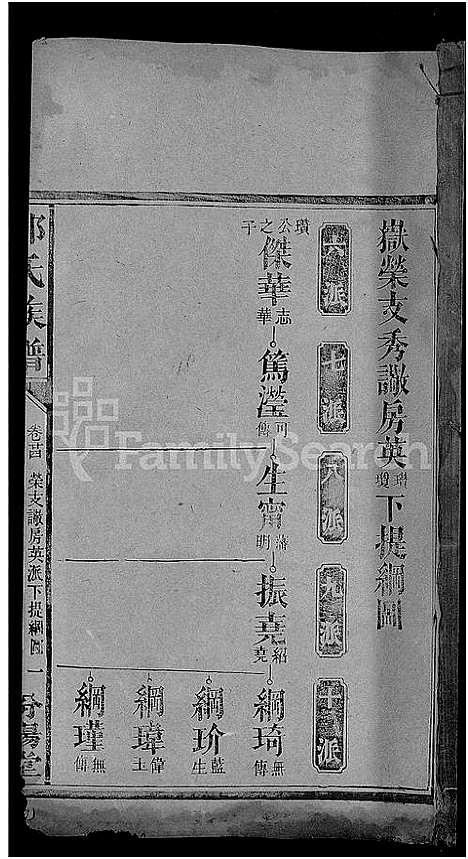 嶽榮支秀諴房英瓚瓊下提綱圖
六派
七派
八派
九派
十派
瓚公之子
傑華 志華
篤瀅 可傳
生甯 藩明
振堯 紹堯
綱琦 無傳
綱玠 藍生
綱瑋 偉土
綱瑾 無傳
氏族譜
卷十四 榮支諴房英派下提綱圖 一
汾陽堂
FamilySearch